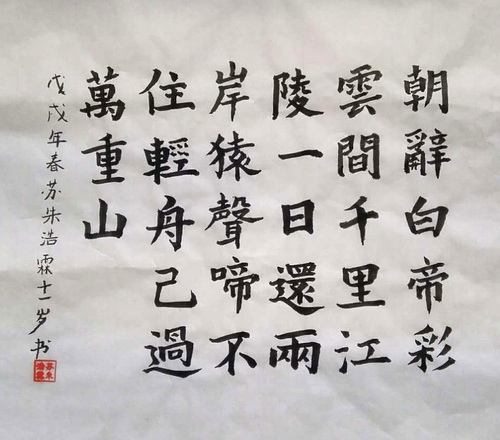 朝辭白帝彩
雲間千里江
陵一日還兩
岸猿聲啼不
住輕舟己過
萬重山
戊戌年春苏朱浩霖十一岁书